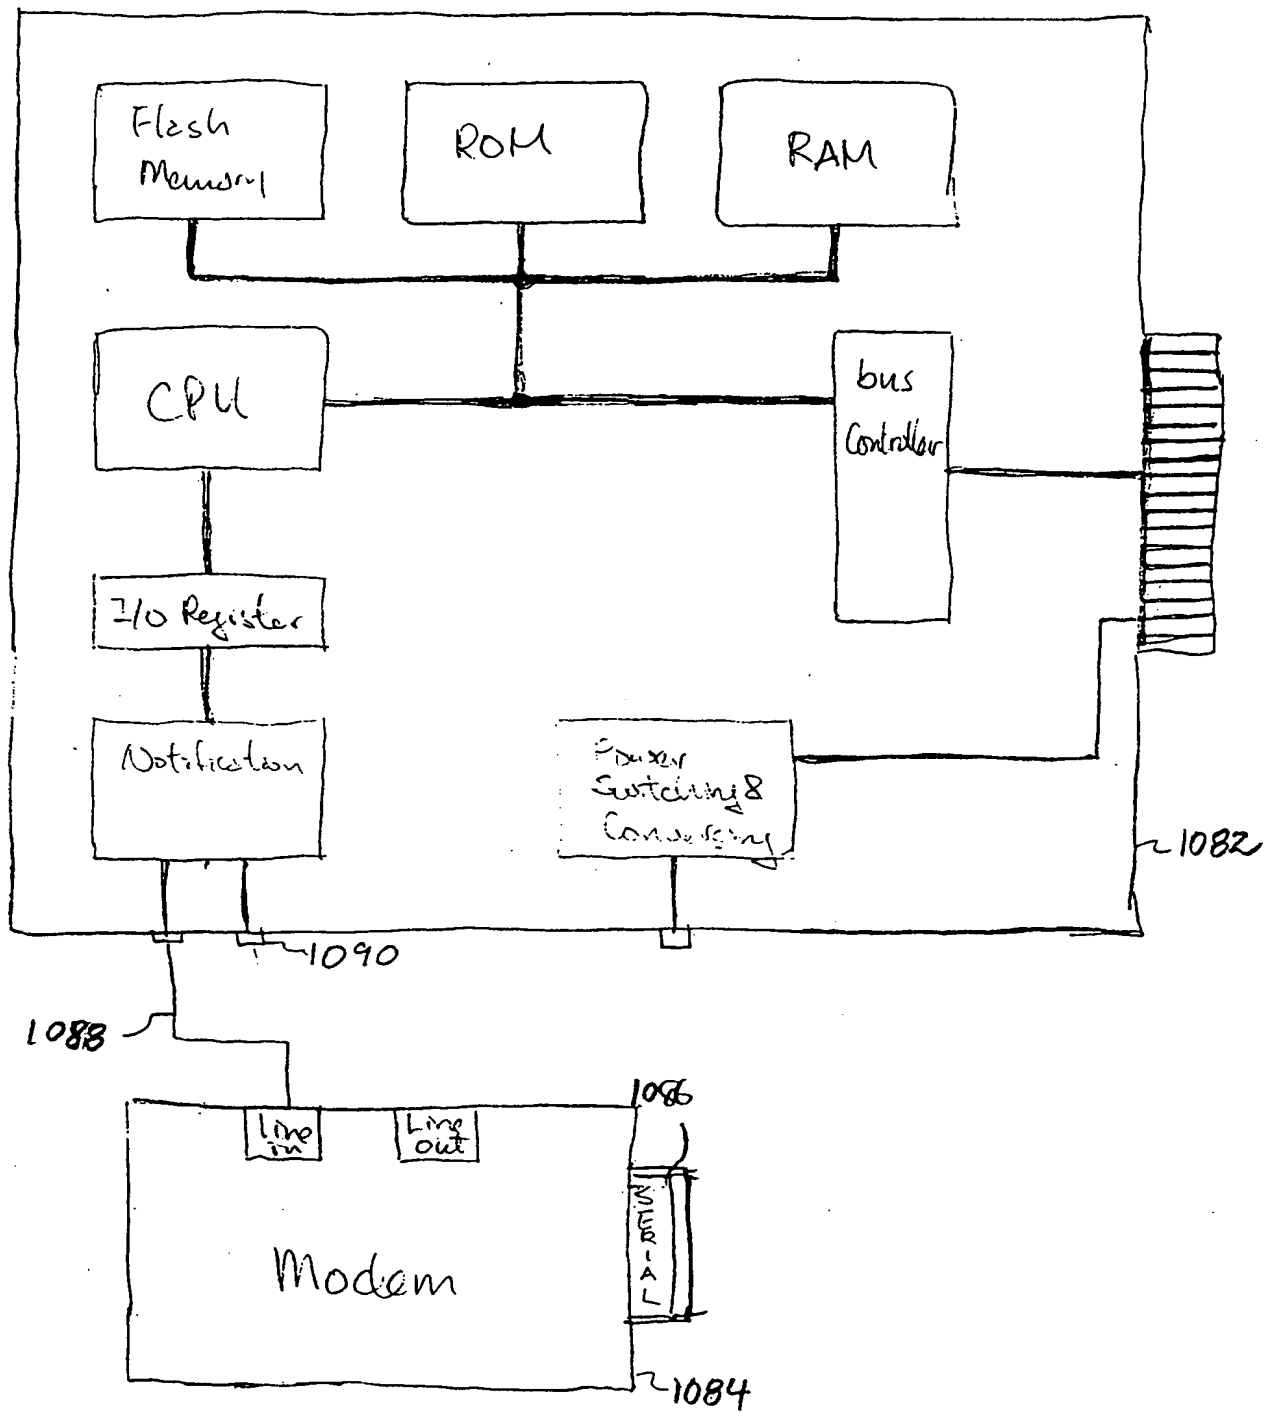 Flash
Memory
ROM
RAM
CPU
bus
Controller
I/O Register
Notification
Power
Switching &
Conversing
1082
1090
1088
1086
Line
in
Line
out
SERIAL
Modem
1084